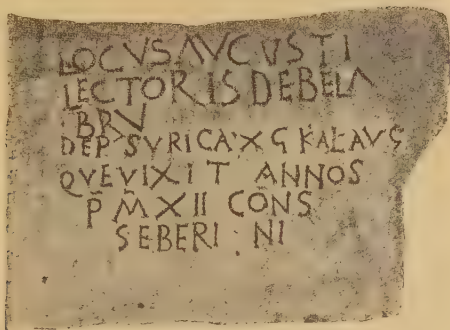 LOCVS AVGVSTI
LECTORIS DE BELA
BRV
DEP SVRICA X G KAL AVG
QVE VIXIT ANNOS
P M XII CONS
SEBERINI